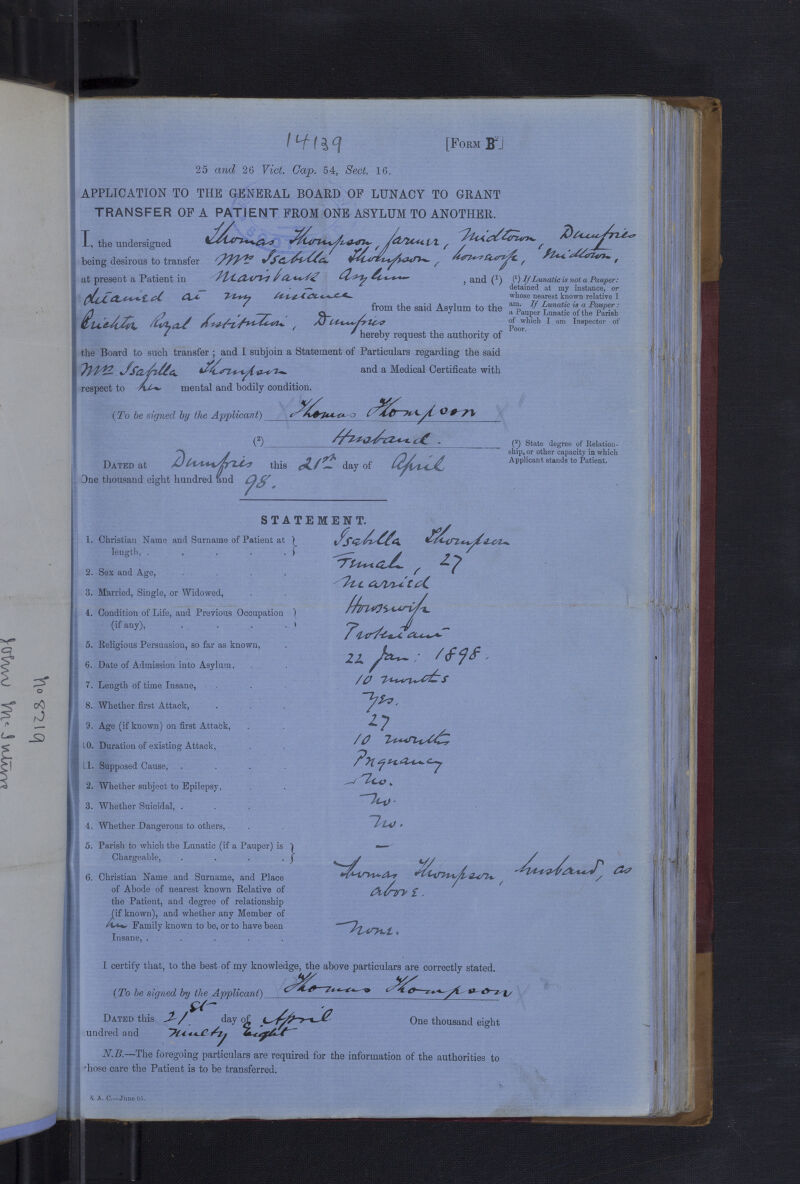 14139 [FORM B²]
25 and 26 Vict. Cap. 54, Sect. 16.
APPLICATION TO THE GENERAL BOARD OF LUNACY TO GRANT
TRANSFER OF A PATIENT FROM ONE ASYLUM TO ANOTHER.
I, the undersigned Thomas Thompson, farmer, Midtown, Dumfries
being desirous to transfer Mrs Isabella Thompson, housewife, Midtown,
at present a Patient in Mavisbank Asylum, and (¹)
detained at my instance
from the said Asylum to the
Crichton Royal Institution, Dumfries
hereby request the authority of
the Board to such transfer; and I subjoin a Statement of Particulars regarding the said
Mrs Isabella Thompson and a Medical Certificate with
respect to her mental and bodily condition.
(¹) If Lunatic is not a Pauper:
detained at my instance, or
whose nearest known relative I
am. If Lunatic is a Pauper:
a Pauper Lunatic of the Parish
of which I am Inspector of
Poor.
(To be signed by the Applicant) Thomas Thompson
(²) Husband.
(²) State degree of Relation-
ship, or other capacity in which
Applicant stands to Patient.
DATED at Dumfries this 21st day of April
One thousand eight hundred and 98.
STATEMENT.
1. Christian Name and Surname of Patient at
length, . Isabella Thompson
2. Sex and Age, Female, 27
3. Married, Single, or Widowed, Married
4. Condition of Life, and Previous Occupation
(if any), Housewife
5. Religious Persuasion, so far as known, Protestant
6. Date of Admission into Asylum, 22 Jan: 1898.
7. Length of time Insane, 10 months
8. Whether first Attack, Yes.
9. Age (if known) on first Attack, 27
10. Duration of existing Attack, 10 months
11. Supposed Cause, Pregnancy
2. Whether subject to Epilepsy, No.
3. Whether Suicidal, No.
4. Whether Dangerous to others, No.
5. Parish to which the Lunatic (if a Pauper) is
Chargeable, —
6. Christian Name and Surname, and Place
of Abode of nearest known Relative of
the Patient, and degree of relationship
(if known), and whether any Member of
her Family known to be, or to have been
Insane, .
Thomas Thompson, husband, as
above.
None.
I certify that, to the best of my knowledge, the above particulars are correctly stated.
(To be signed by the Applicant) Thomas Thompson
DATED this 21st day of April One thousand eight
undred and Ninety Eight
N.B.—The foregoing particulars are required for the information of the authorities to
whose care the Patient is to be transferred.
& A. C.—June 95.
No 8219
John McIntyre